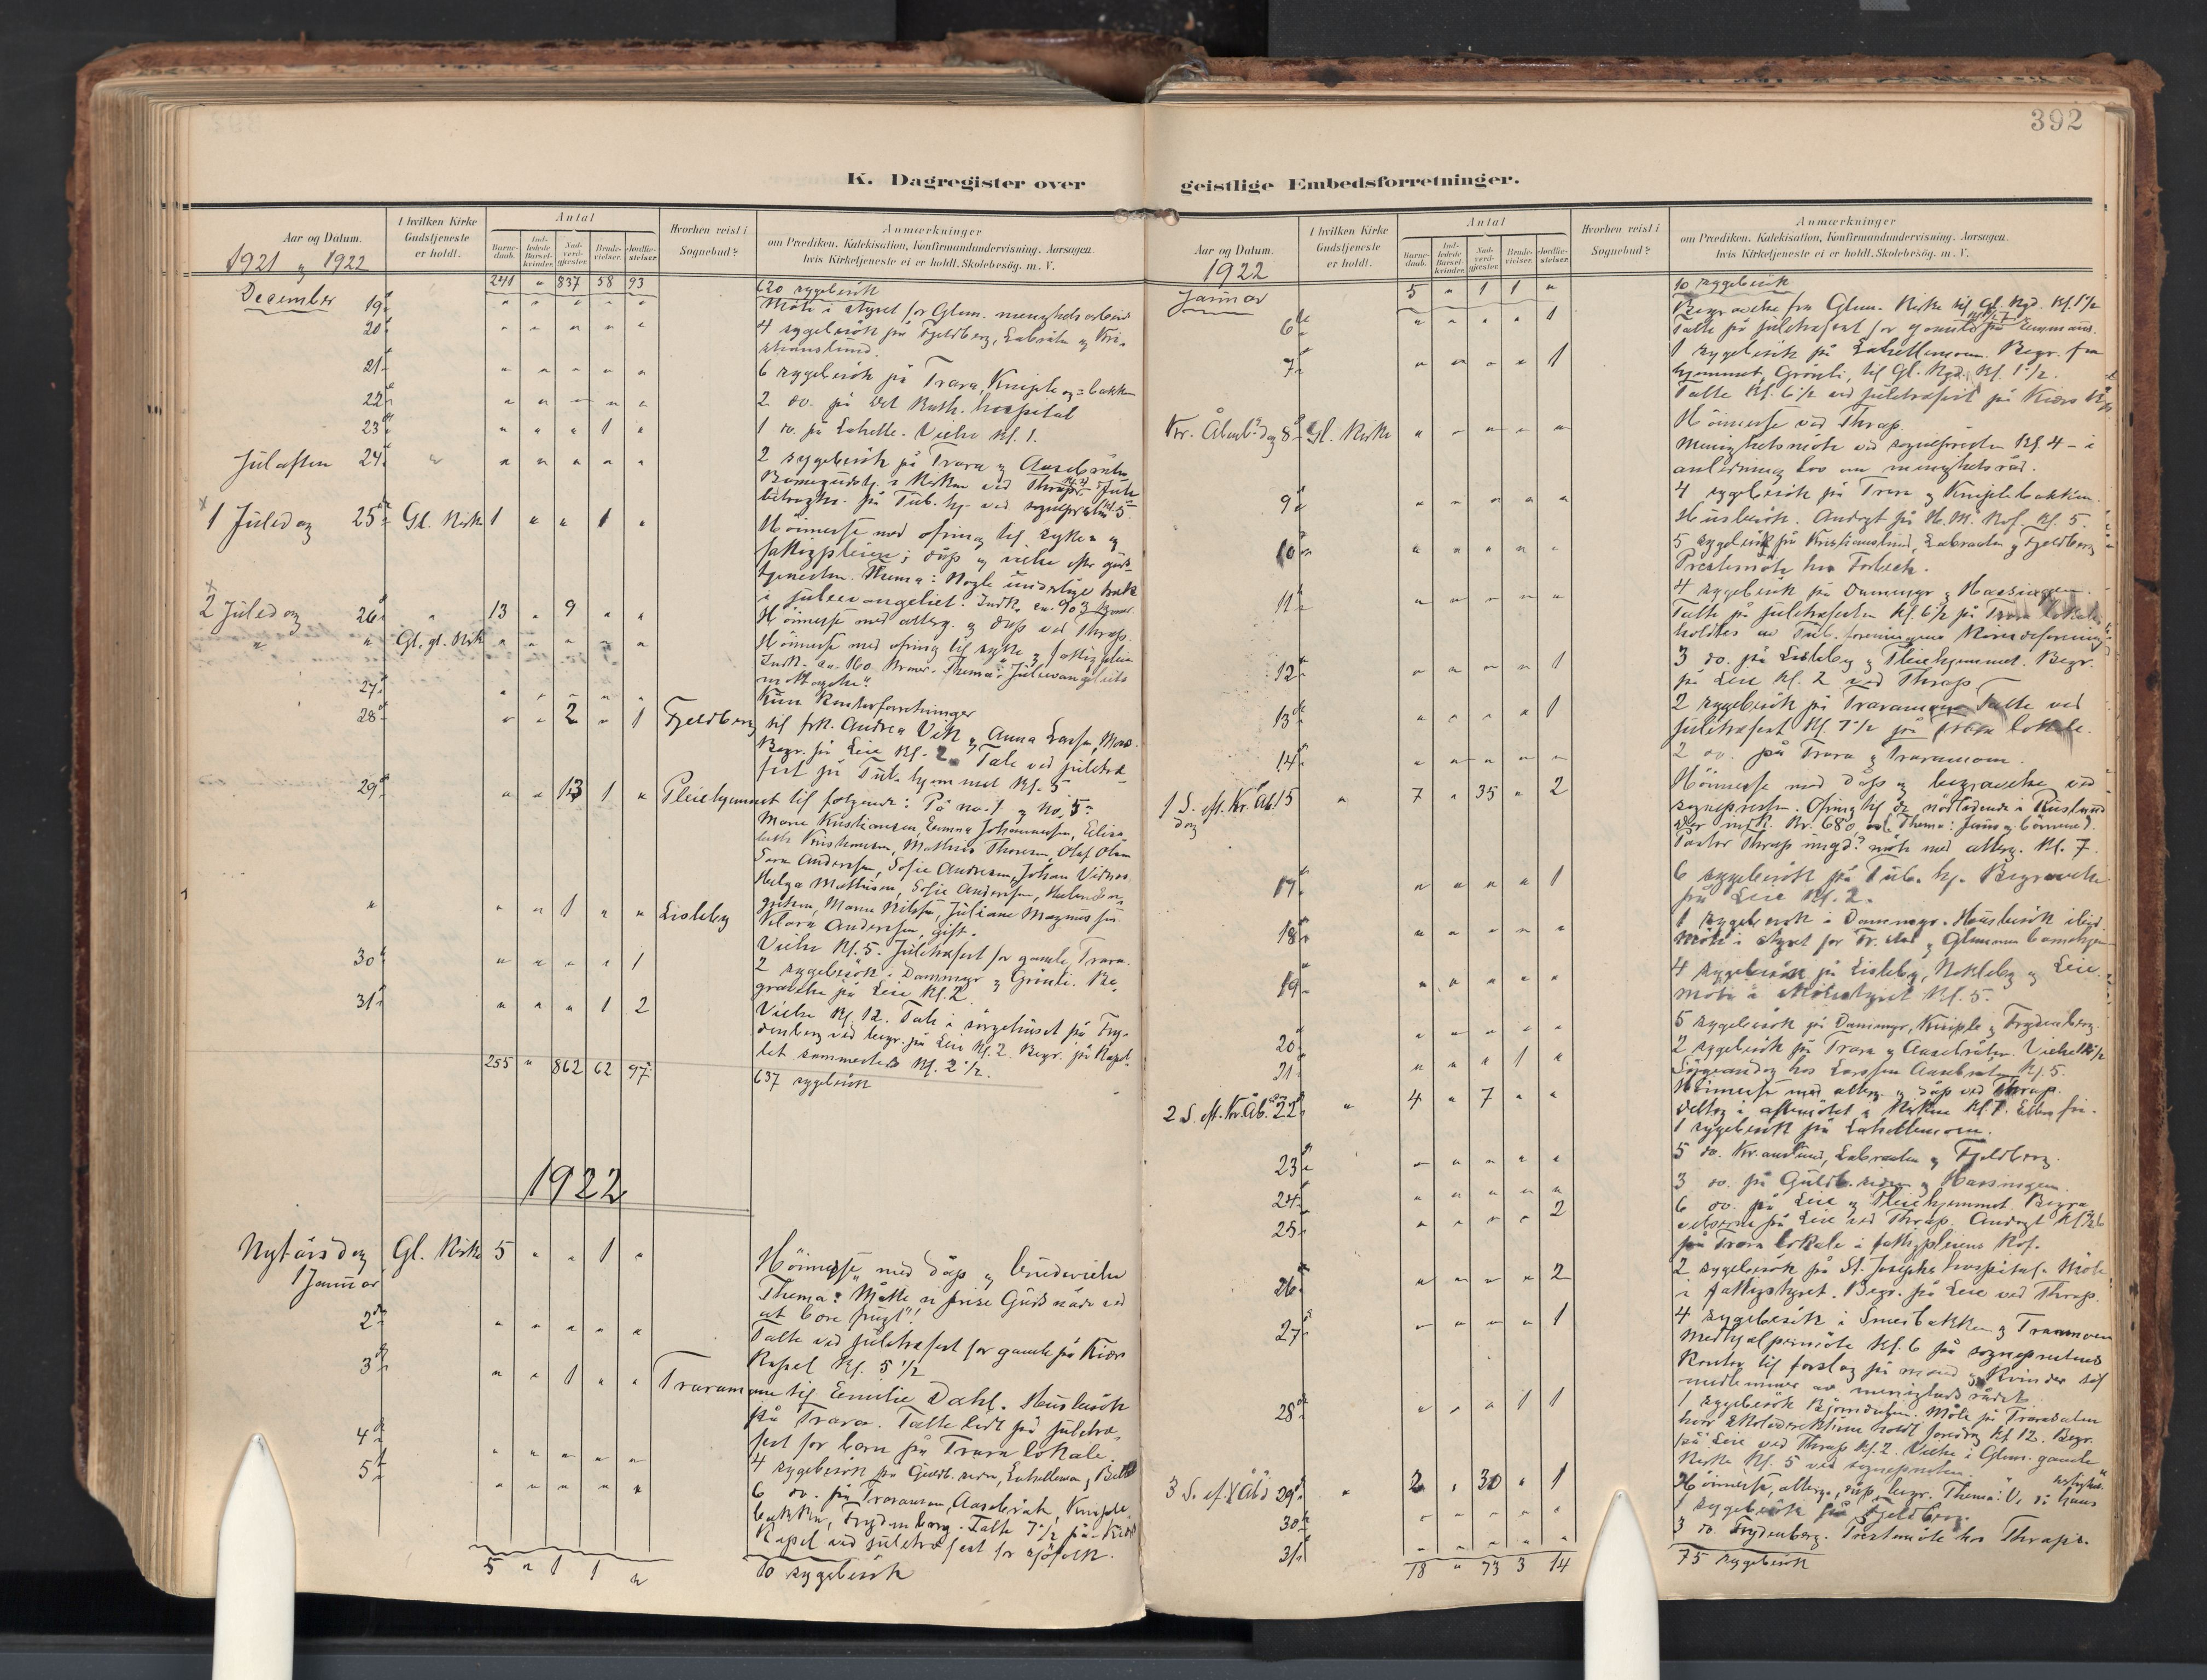 392
K. Dagregister over
geistlige Embedsforretninger.
Aar og Datum.
I hvilken Kirke Gudstjeneste er holdt.
Antal
Barnedaab.
Indledede Barselkvinder.
Nadverdgjester.
Brudevielser.
Jordfæstelser.
Hvorhen reist i Sognebud?
Anmærkninger
om Prædiken, Katekisation, Konfirmandundervisning, Aarsagen,
hvis Kirketjeneste ei er holdt, Skolebesög. m. V.
1921 og 1922
241 " 837 58 93 620 sygebesök
December 19de " " " " " Möte i styret for Glem. menighets arbeid
20de " " " " " 4 sygebesök på Fjeldberg, Labråten og Kri-
stianslund.
21de " " " " " 6 sygebesök på Trara, Kniple og = bakken
22de " " " " " 2 do. på det Kath. hospital
23de " " " 1 " 1 do. på Lahelle. Vielse Kl. 1.
Julaften 24de " " " " " " 2 sygebesök på Trara og Aasebråten
Barnegudstj. i Kirken ved Thrap. Jule
betragtn. på Tub. hj. ved sognepresten Kl. 5.
1 Juledag 25de Gl. Kirke 1 " " 1 " Höimesse med ofring til syke- og
fattigpleien; dåp og vielse efter guds-
tjenesten. Thema: Nogle underlige træk
i juleevangeliet. Indk. ca. 903 kroner
2 Juledag 26de " 13 " 9 " " Höimesse med alterg. og dåp ved Thrap.
" " Gl. gl. Kirke " " " " " Höimesse med ofring til syke og fattigpleie
Indk. ca. 160 Kroner. Thema: "Juleevangeliets
mottagelse".
27de " " " " " Kun Kontorforretninger
28de " " 2 " 1 Fjeldberg til frk. Andrea Vik og Anna Larsen, Moss.
Begr. på Leie Kl. 2. Tale ved juletræ-
fest på Tub. hjemmet Kl. 5
29de " " 13 1 " Pleiehjemmet til følgende: På no. 1 og No. 5:
Marie Kristiansen, Emma Johannesen, Elisa-
beth Kristiansen, Mathias Thoresen, Olaf Olsen
Sara Andersen, Sofie Andresen, Johan
Helga Mathisen, Sofie Andersen,
Marie Nilsen, Juliane Magnussen
" " " 1 " " Lisleby Klara Andersen, gift.
Vielse Kl. 5. Juletræfest for gamle, Trara.
30de " " " " 1 2 sygebesök i Dammyr og Grönli. Be-
gravelse på Leie Kl. 2
31te " " " 1 2 Vielse Kl. 12. Tale i sørgehuset på Fry-
denberg ved begr. på Leie Kl. 2. Begr. på Kapel-
let sammesteds Kl. 2 1/2.
255 " 862 62 97 637 sygebesök
1922
Nytårsdag Gl. Kirke 5 " " 1 " Höimesse med dåp og brudevielse
1 Januar Thema: "Måtte vi prise Guds nåde ved
at bære frugt"!
2den " " " " " Talte ved juletræfest for gamle på Kiærs
Kapel Kl. 5 1/2
3die " " 1 " " Traramoen til Emilie Dahl. Husbesök
på Trara. Talte litt på juletræ-
fest for barn på Trara lokale.
4de " " " " " 4 sygebesök på Guldb. siden, Lahellemoen og
5te " " " " " 6 do. på Traramoen, Aasebråten, Kniple-
bakken, Frydenberg. Talte 7 1/2 på Kiærs
Kapel ved juletræfest for sjøfolk.
5 " 1 1 " 10 sygebesök
Aar og Datum.
I hvilken Kirke Gudstjeneste er holdt.
Antal
Barnedaab.
Indledede Barselkvinder.
Nadverdgjester.
Brudevielser.
Jordfæstelser.
Hvorhen reist i Sognebud?
Anmærkninger
om Prædiken, Katekisation, Konfirmandundervisning, Aarsagen,
hvis Kirketjeneste ei er holdt, Skolebesög. m. V.
1922
Januar 5 " 1 1 " 10 sygebesök
6te " " " " 1 Begravelse fra Glem. Kirke til Gl. Kgd. Kl. 1 1/2
Talte på juletræfest for gamle på Emmaus.
7de " " " " 1 1 sygebesök på Lahellemoen. Begr. fra
hjemmet, Grönli, til Gl. Kgd. Kl. 1 1/2.
Talte Kl. 6 1/2 ved juletræfest på Kiærs Kap.
Kr. Åbenb. dag 8de Gl. Kirke " " " " " Höimesse ved Thrap.
Menighetsmöte ved sognepresten Kl. 4 - i
anledning lov om menighetsråd.
9de " " " " " 4 sygebesök på Trara og Kniplebakken.
Husbesök. Andagt på K. M. Kof. Kl. 5.
10de " " " " " 5 sygebesök på Kristianslund, Labraaten og Fjeldberg
Prestemöte hos Forbech.
11te " " " " " 4 sygebesök på Dammyr og Hassingen.
Talte på juletræfesten Kl. 6 1/2 på Trara lokale
holdtes av Tub. foreningens Kvindeforening
12te " " " " 1 3 do. på Lisleby og Pleiehjemmet. Begr.
på Leie Kl. 2 ved Thrap
13de " " " " 1 2 sygebesök på Traramoen. Talte ved
juletræfest Kl. 7 1/2 på Trara lokale.
14de " " " " " 2 do. på Trara og Traramoen.
1 S. eft. Kr. Åb. dag 15 " 7 " 35 " 2 Höimesse med dåp og begravelse ved
sognepresten. Ofring til de nödlidende i Rusland
Der indk. Kr. 680. Thema: Jesus og börnene.
Pastor Thrap möte med alterg. Kl. 7.
17de " " " " 1 6 sygebesök på Tub. hj. Begravelse
på Leie Kl. 2.
18de " " " " " 1 sygebesök i Dammyr. Husbesök
Möte i styret for Fr.stad og Glemmen barnehjem
19de " " " " " 4 sygebesök på Lisleby, Nokleby og Leie.
Möte i Skolestyret Kl. 5.
20de " " " " " 5 sygebesök på Dammyr, Kniple og Frydenberg.
21de " " " 1 " 2 sygebesök på Trara og Aasebråten. Vielse
Sörgeandag hos Larssen Aasebraten Kl. 5.
2 S. eft. Kr. Åb. 22de " 4 " 7 " " Höimesse med alterg. og dåp ved Thrap.
Deltog i aftenmötet i Kirken Kl. 7.
1 sygebesök på Lahellemoen.
23de " " " " " 5 do. Kr.anslund, Labraaten og Fjeldberg.
24de " " " " " 3 do. på Guldb. siden og Hassingen.
25de " " " " 2 6 do. på Leie og Pleiehjemmet. Begra-
velserne på Leie ved Thrap. Andagt Kl.
på Trara lokale i fattigpleiens Kof.
26de " " " " 2 2 sygebesök på St. Josephs hospital. Möte
i fattigstyret. Begr. på Leie ved Thrap.
27de " " " " 1 4 sygebesök i Smerbakken og Traramoen
Medhjælpermöte Kl. 6 på sogneprestens
Kontor til forslag på mænd og Kvinder til
medlemmer av menighetsrådet.
28de " " " 1 1 1 sygebesök Bjørndalen. Möte på Trarasalen
hvor skoledirektören holdt foredrag Kl. 12. Begr.
på Leie ved Thrap Kl. 2. Vielse i Glem. gamle
Kirke Kl. 5 ved sognepresten.
3 S. ef. Kr Åb. 29de " 2 " 30 " 1 Höimesse, alterg., dåp, begr. Thema: Vi så hans herlighet
30te " " " " " 1 sygebesök på Fjeldberg.
31te " " " " " 3 do. Frydenberg. Prestemöte hos Thrap.
18 " 73 3 14 75 sygebesök